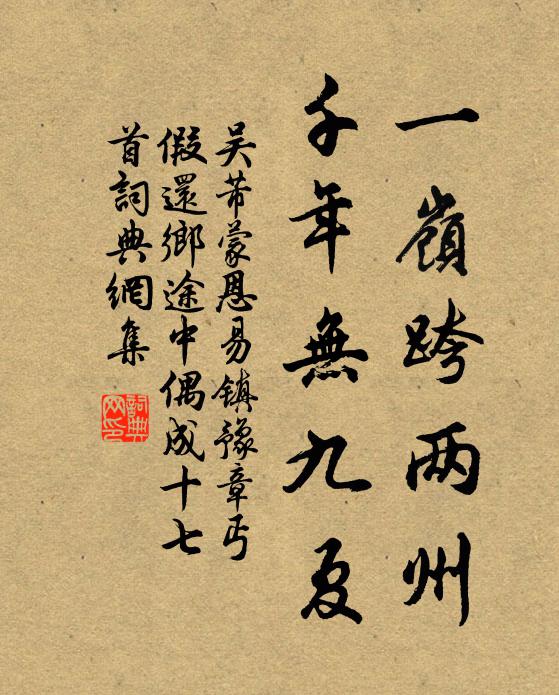 一嶺跨两州
千年無九夏
吴芾蒙恩易鎮豫章丐
假還鄉途中偶成十七
首詞典網集
詞典
网印